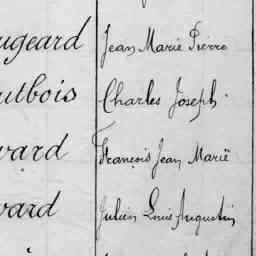 ugeard Jean Marie Pierre
utbois Charles Joseph
vard François Jean Marie
vard Julien Louis Augustin